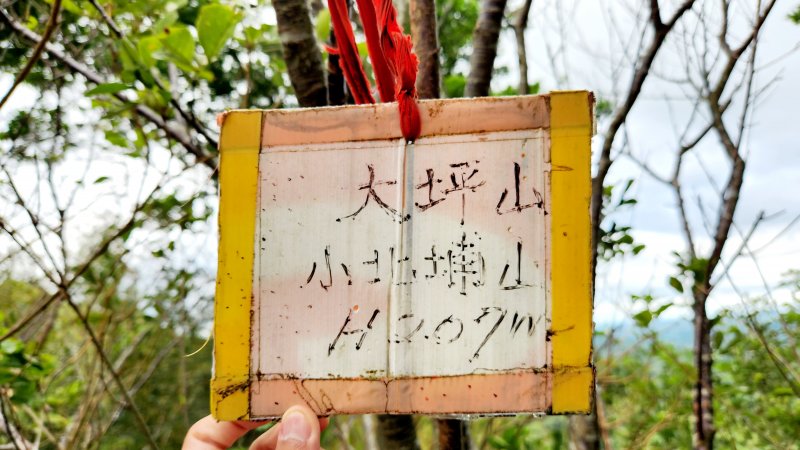 大坪山
小北埔山
H207m